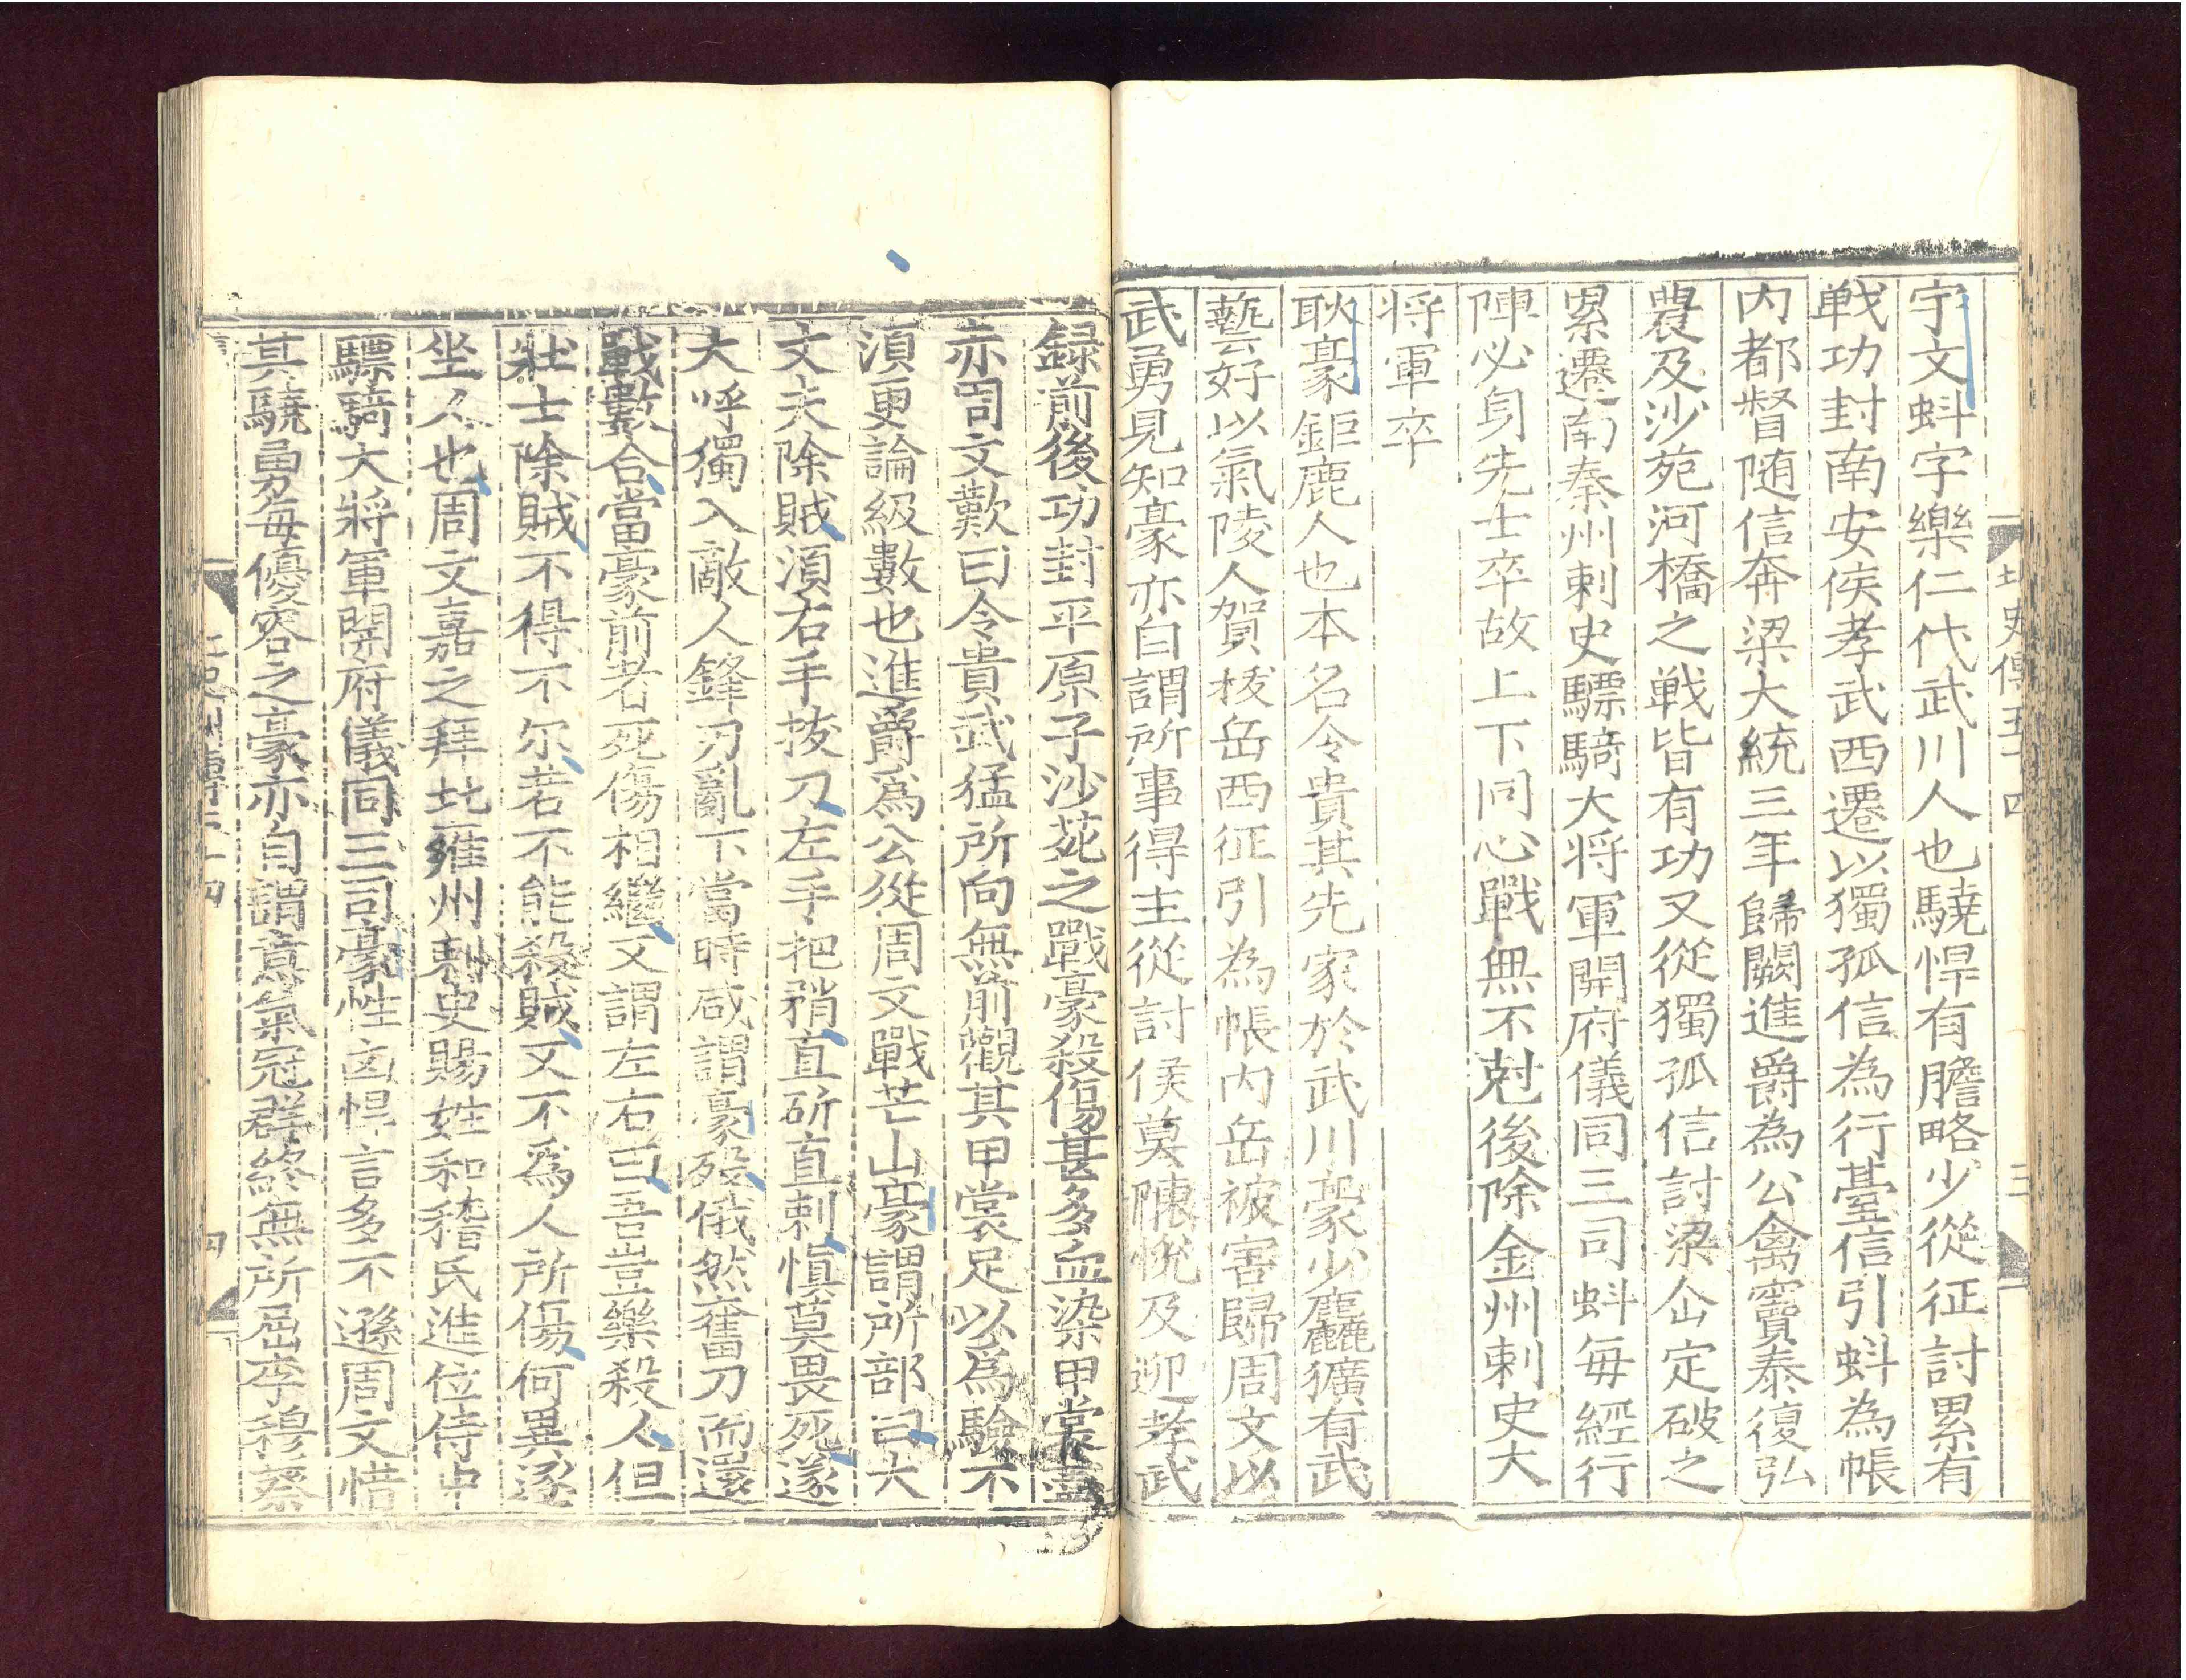 宇文蚪字樂仁代武川人也驍悍有膽略少從征討累有
戦功封南安侯孝武西遷以獨孤信為行臺信引蚪為帳
内都督随信奔梁大統三年歸闕進爵為公禽竇泰復弘
農及沙苑河橋之戦皆有功又從獨孤信討梁仚定破之
累遷南秦州刺史驃騎大将軍開府儀同三司蚪毎經行
陣必身先士卒故上下同心戰無不尅後除金州刺史大
将軍卒
耿豪鉅鹿人也本名令貴其先家於武川豪少麤獷有武
藝好以氣陵人賀拔岳西征引為帳内岳被害歸周文以
武勇見知豪亦自謂所事得主從討侯莫陳悅及迎孝武
録前後功封平原子沙苑之戰豪殺傷甚多血染甲裳盡
赤周文歎曰令貴武猛所向無前觀其甲裳足以爲驗不
湏更論級數也進爵爲公從周文戰芒山豪謂所部曰大
丈夫除賊湏右手拔刀左手把矟直斫直刺愼莫畏死遂
大呼獨入敵人鋒刃亂下當時咸謂豪殁俄然奮刀而還
戰數合當豪前者死傷相繼又謂左右曰吾豈樂殺人但
壯士除賊不得不尔若不能殺賊又不爲人所傷何異逐
坐人也周文嘉之拜北雍州刺史賜姓和稽氏進位侍中
驃騎大將軍開府儀同三司豪性凶悍言多不遜周文惜
其驍勇每優容之豪亦自謂意氣冠群終無所屈李穆蔡
北史傳五十四
三
四